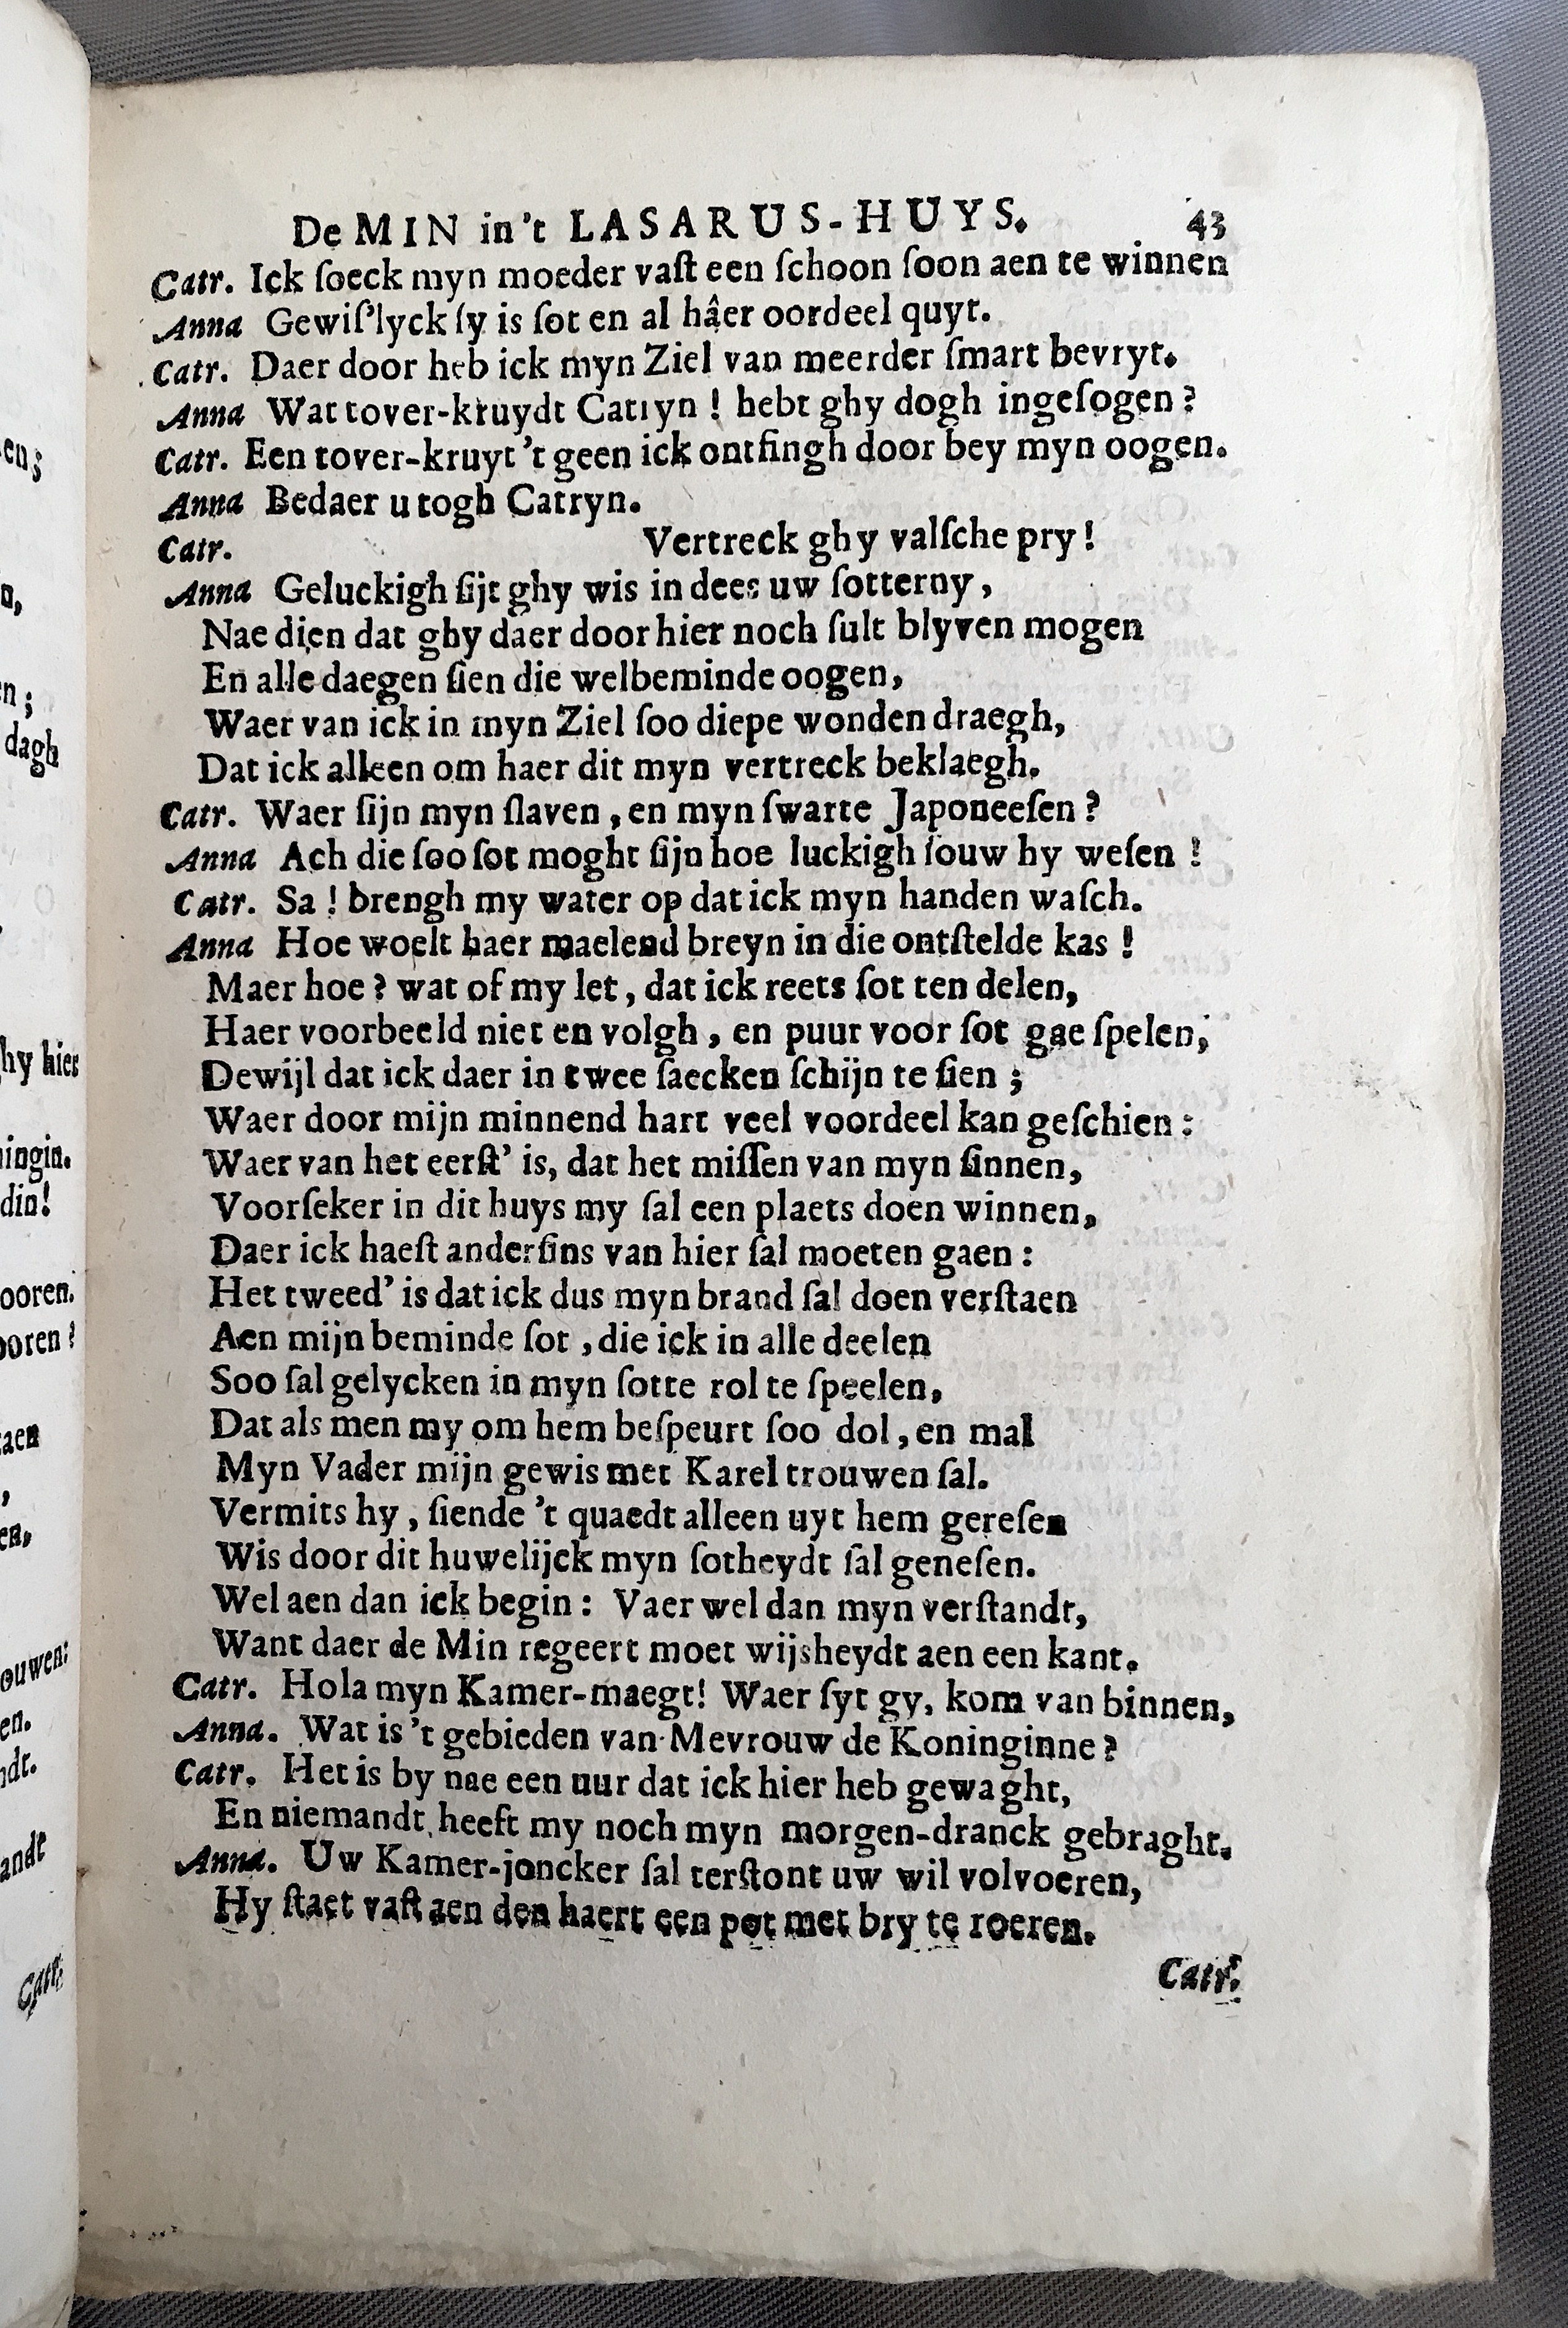 De MIN in 't LASARUS-HUYS. 43
Catr. Ick ſoeck myn moeder vaſt een ſchoon ſoon aen te winnen
Anna Gewiſ'lyck ſy is ſot en al hâer oordeel quyt.
Catr. Daer door heb ick myn Ziel van meerder ſmart bevryt.
Anna Wat tover-kruydt Catryn ! hebt ghy dogh ingeſogen ?
Catr. Een tover-kruyt 't geen ick ontfingh door bey myn oogen.
Anna Bedaer u togh Catryn.
Catr. Vertreck ghy valſche pry !
Anna Geluckigh ſijt ghy wis in dees uw ſotterny,
Nae dien dat ghy daer door hier noch ſult blyven mogen
En alle daegen ſien die welbeminde oogen,
Waer van ick in myn Ziel ſoo diepe wonden draegh,
Dat ick alleen om haer dit myn vertreck beklaegh.
Catr. Waer ſijn myn ſlaven, en myn ſwarte Japoneeſen ?
Anna Ach die ſoo ſot moght ſijn hoe luckigh ſouw hy weſen !
Catr. Sa ! brengh my water op dat ick myn handen waſch.
Anna Hoe woelt haer maelend breyn in die ontſtelde kas !
Maer hoe ? wat of my let, dat ick reets ſot ten delen,
Haer voorbeeld niet en volgh, en puur voor ſot gae ſpelen,
Dewijl dat ick daer in twee ſaecken ſchijn te ſien ;
Waer door mijn minnend hart veel voordeel kan geſchien :
Waer van het eerſt' is, dat het miſſen van myn ſinnen,
Voorſeker in dit huys my ſal een plaets doen winnen,
Daer ick haeſt anderſins van hier ſal moeten gaen :
Het tweed' is dat ick dus myn brand ſal doen verſtaen
Aen mijn beminde ſot, die ick in alle deelen
Soo ſal gelycken in myn ſotte rol te ſpeelen,
Dat als men my om hem beſpeurt ſoo dol, en mal
Myn Vader mijn gewis met Karel trouwen ſal.
Vermits hy, ſiende 't quaedt alleen uyt hem gereſen
Wis door dit huwelijck myn ſotheydt ſal geneſen.
Wel aen dan ick begin : Vaer wel dan myn verſtandt,
Want daer de Min regeert moet wijsheydt aen een kant.
Catr. Hola myn Kamer-maegt! Waer ſyt gy, kom van binnen,
Anna. Wat is 't gebieden van Mevrouw de Koninginne ?
Catr. Het is by nae een uur dat ick hier heb gewaght,
En niemandt heeft my noch myn morgen-dranck gebraght.
Anna. Uw Kamer-joncker ſal terſtont uw wil volvoeren,
Hy ſtaet vaſt aen den haert een pot met bry te roeren.
Catr.
ens
n,
n ;
dagh
hy hier
ingin.
din!
ooren.
ooren ?
aen
,
en,
ouwen:
en.
ndt.
andt
Catr.